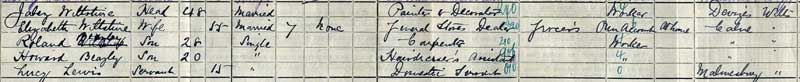 Jabez Wiltshire Head 48 Married Painter & Decorator Worker Devizes Wilts
Elizabeth Wiltshire Wife 55 Married 7 None General Stores Dealer Grocer's Own Account At home Calne "
Roland Beazley Son 28 Single Carpenter Worker " "
Howard Beazley Son 20 " Hairdresser's Assistant " " "
Lucy Lewis Servant 15 " Domestic Servant Malmesbury "